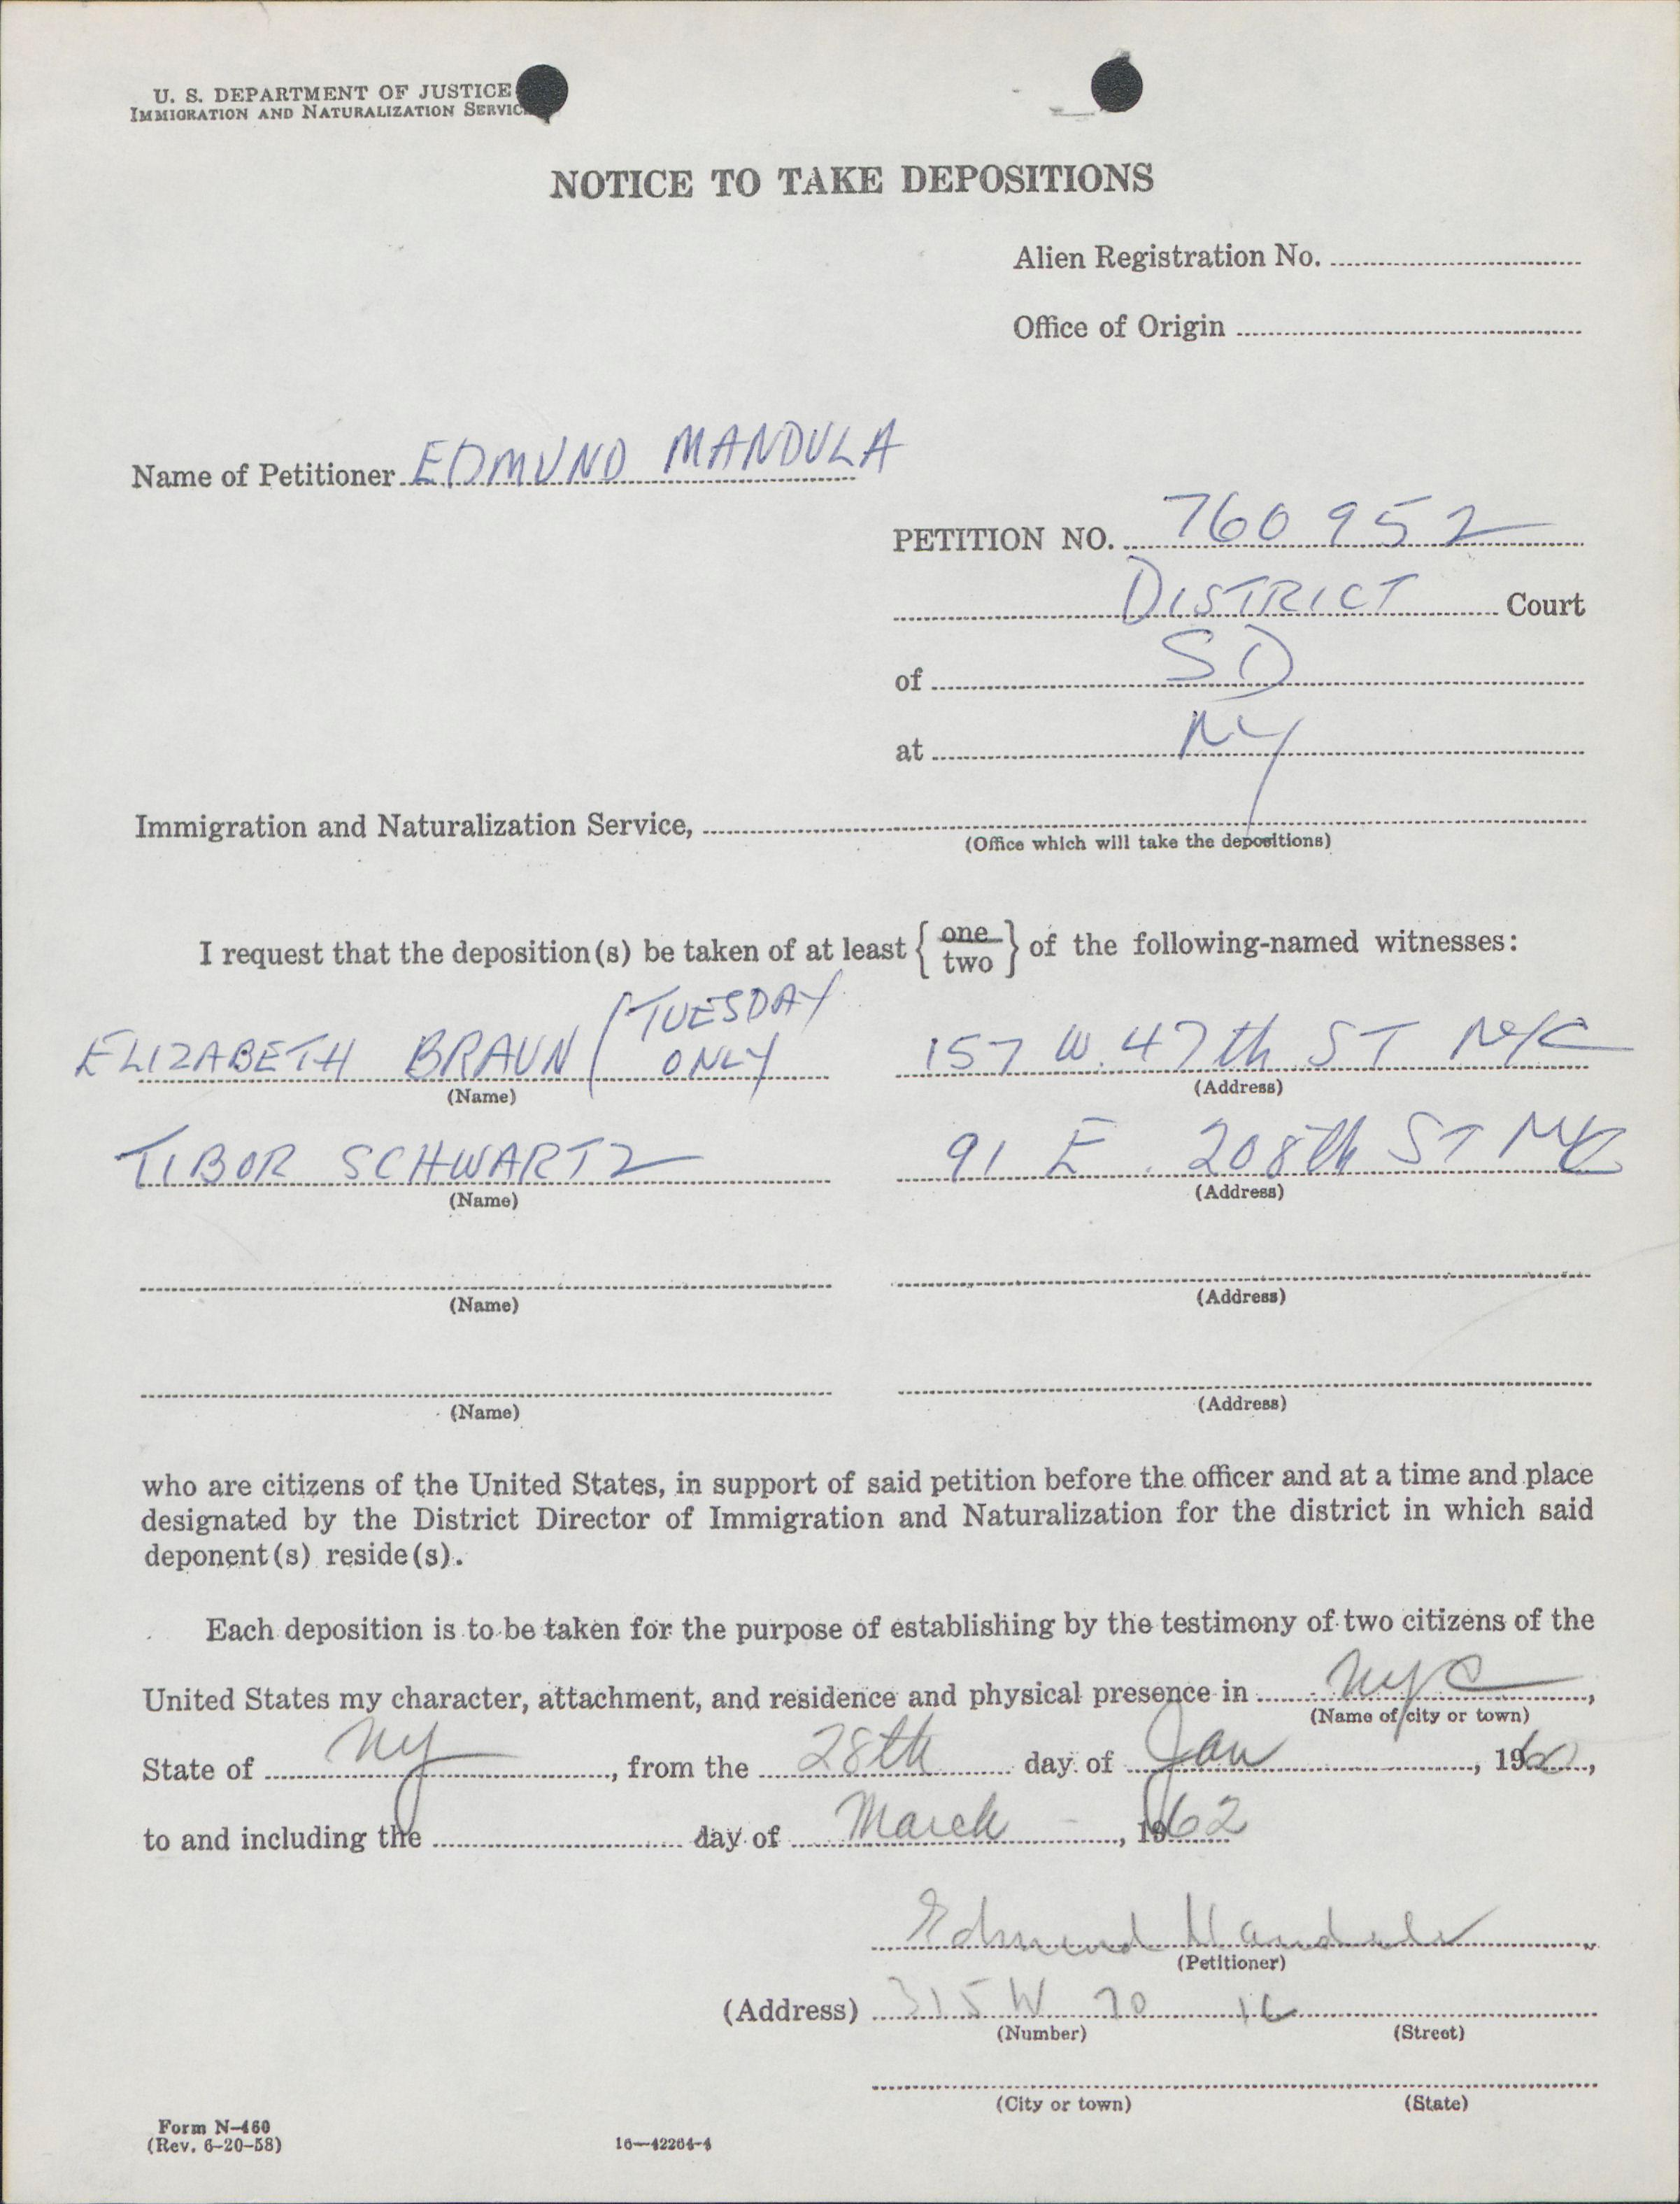 U. S. DEPARTMENT OF JUSTICE
IMMIGRATION AND NATURALIZATION SERVICE
NOTICE TO TAKE DEPOSITIONS
Alien Registration No.
Office of Origin
Name of Petitioner EDMUND MANDULA
PETITION NO. 760952
DISTRICT Court
of SD
at NY
Immigration and Naturalization Service,
(Office which will take the depositions)
I request that the deposition(s) be taken of at least { one / two } of the following-named witnesses:
ELIZABETH BRAUN (TUESDAY ONLY 157 W. 47th ST NYC
(Name) (Address)
TIBOR SCHWARTZ 91 E. 208th ST NYC
(Name) (Address)
(Name) (Address)
(Name) (Address)
who are citizens of the United States, in support of said petition before the officer and at a time and place
designated by the District Director of Immigration and Naturalization for the district in which said
deponent(s) reside(s).
Each deposition is to be taken for the purpose of establishing by the testimony of two citizens of the
United States my character, attachment, and residence and physical presence in NYC,
(Name of city or town)
State of NY, from the 28th day of Jan, 1960,
to and including the day of March, 1962
Edmund Mandula
(Petitioner)
(Address) 315 W 70
(Number) (Street)
(City or town) (State)
Form N-460
(Rev. 6-20-58) 16—42264-4